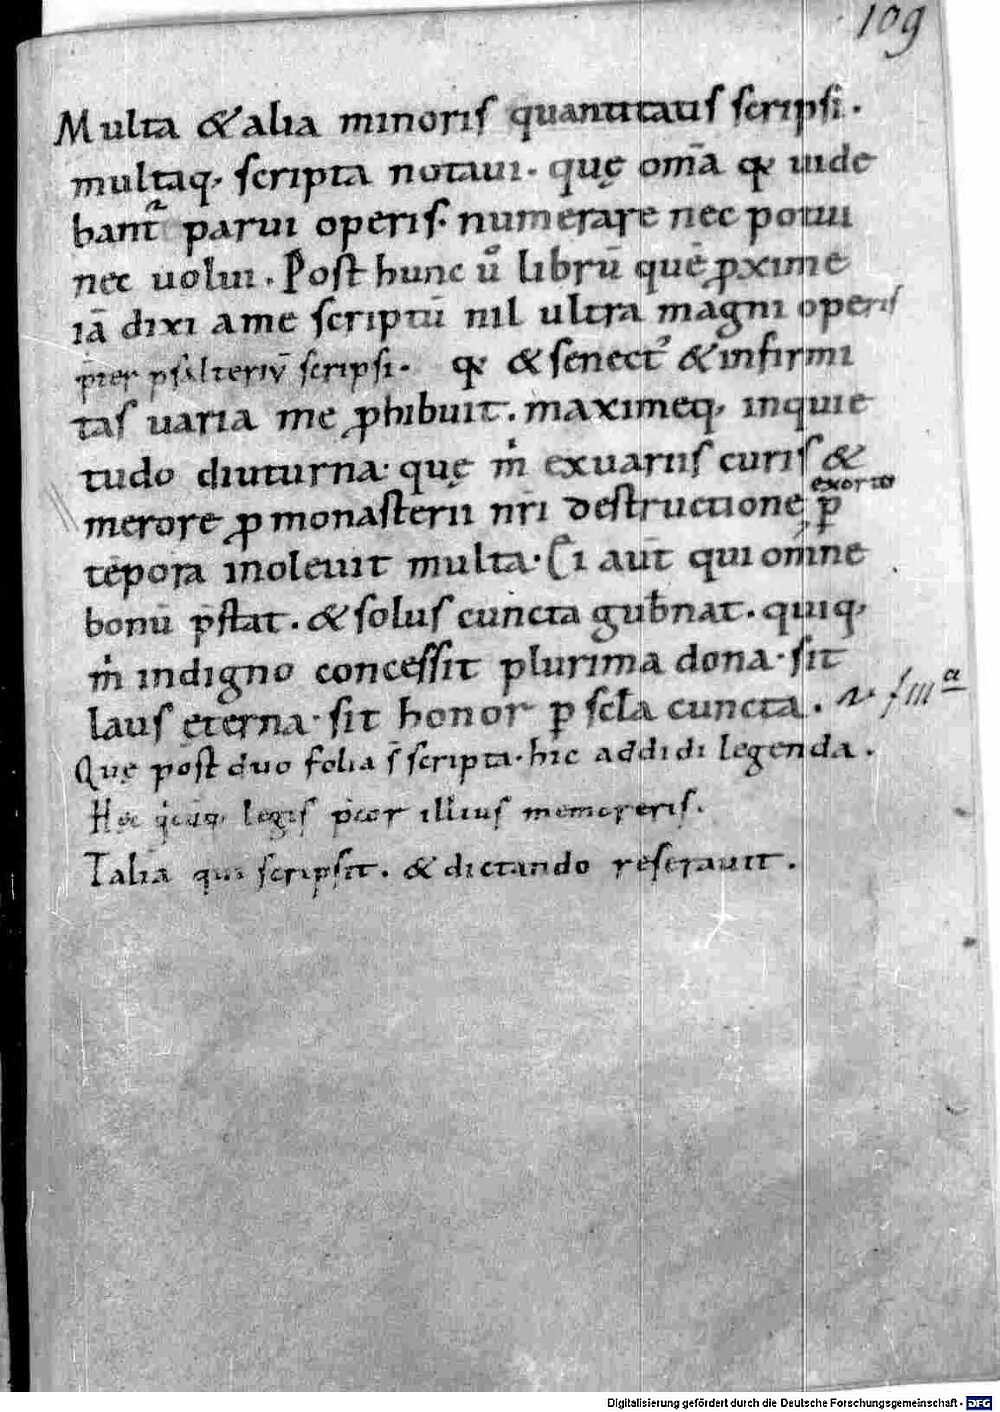 109
Multa & alia minoris quantitatis scripsi.
multaq; scripta notaui. quę om̄a q̄ uide
bant᷑ parui operis. numerare nec potui
nec uolui. Post hunc ů librū quē ꝓxime
iā dixi a me scriptū nil ultra magni operis
p̄ter psalteriū scripsi. q̄ & senect᷒ & infirmi
tas uaria me ꝓhibuit. maximeq; inquie
tudo diuturna. quę m̊ ex uariis curis &
merore ꝓ monasterii nr̄i destructione exorto ꝑ
tēpora inoleuit multa. Ei aut̄ qui omne
bonū p̄stat. & solus cuncta gub̄nat. quiq;
m̊ indigno concessit plurima dona. sit
laus ęterna. sit honor ꝑ sc̄la cuncta.
Quę post duo folia s̄ scripta. hic addidi legenda.
Hęc q̊cūq; legis p̄cor illius memoreris.
Talia qui scripsit. & dictando reserauit.
Digitalisierung gefördert durch die Deutsche Forschungsgemeinschaft - DFG